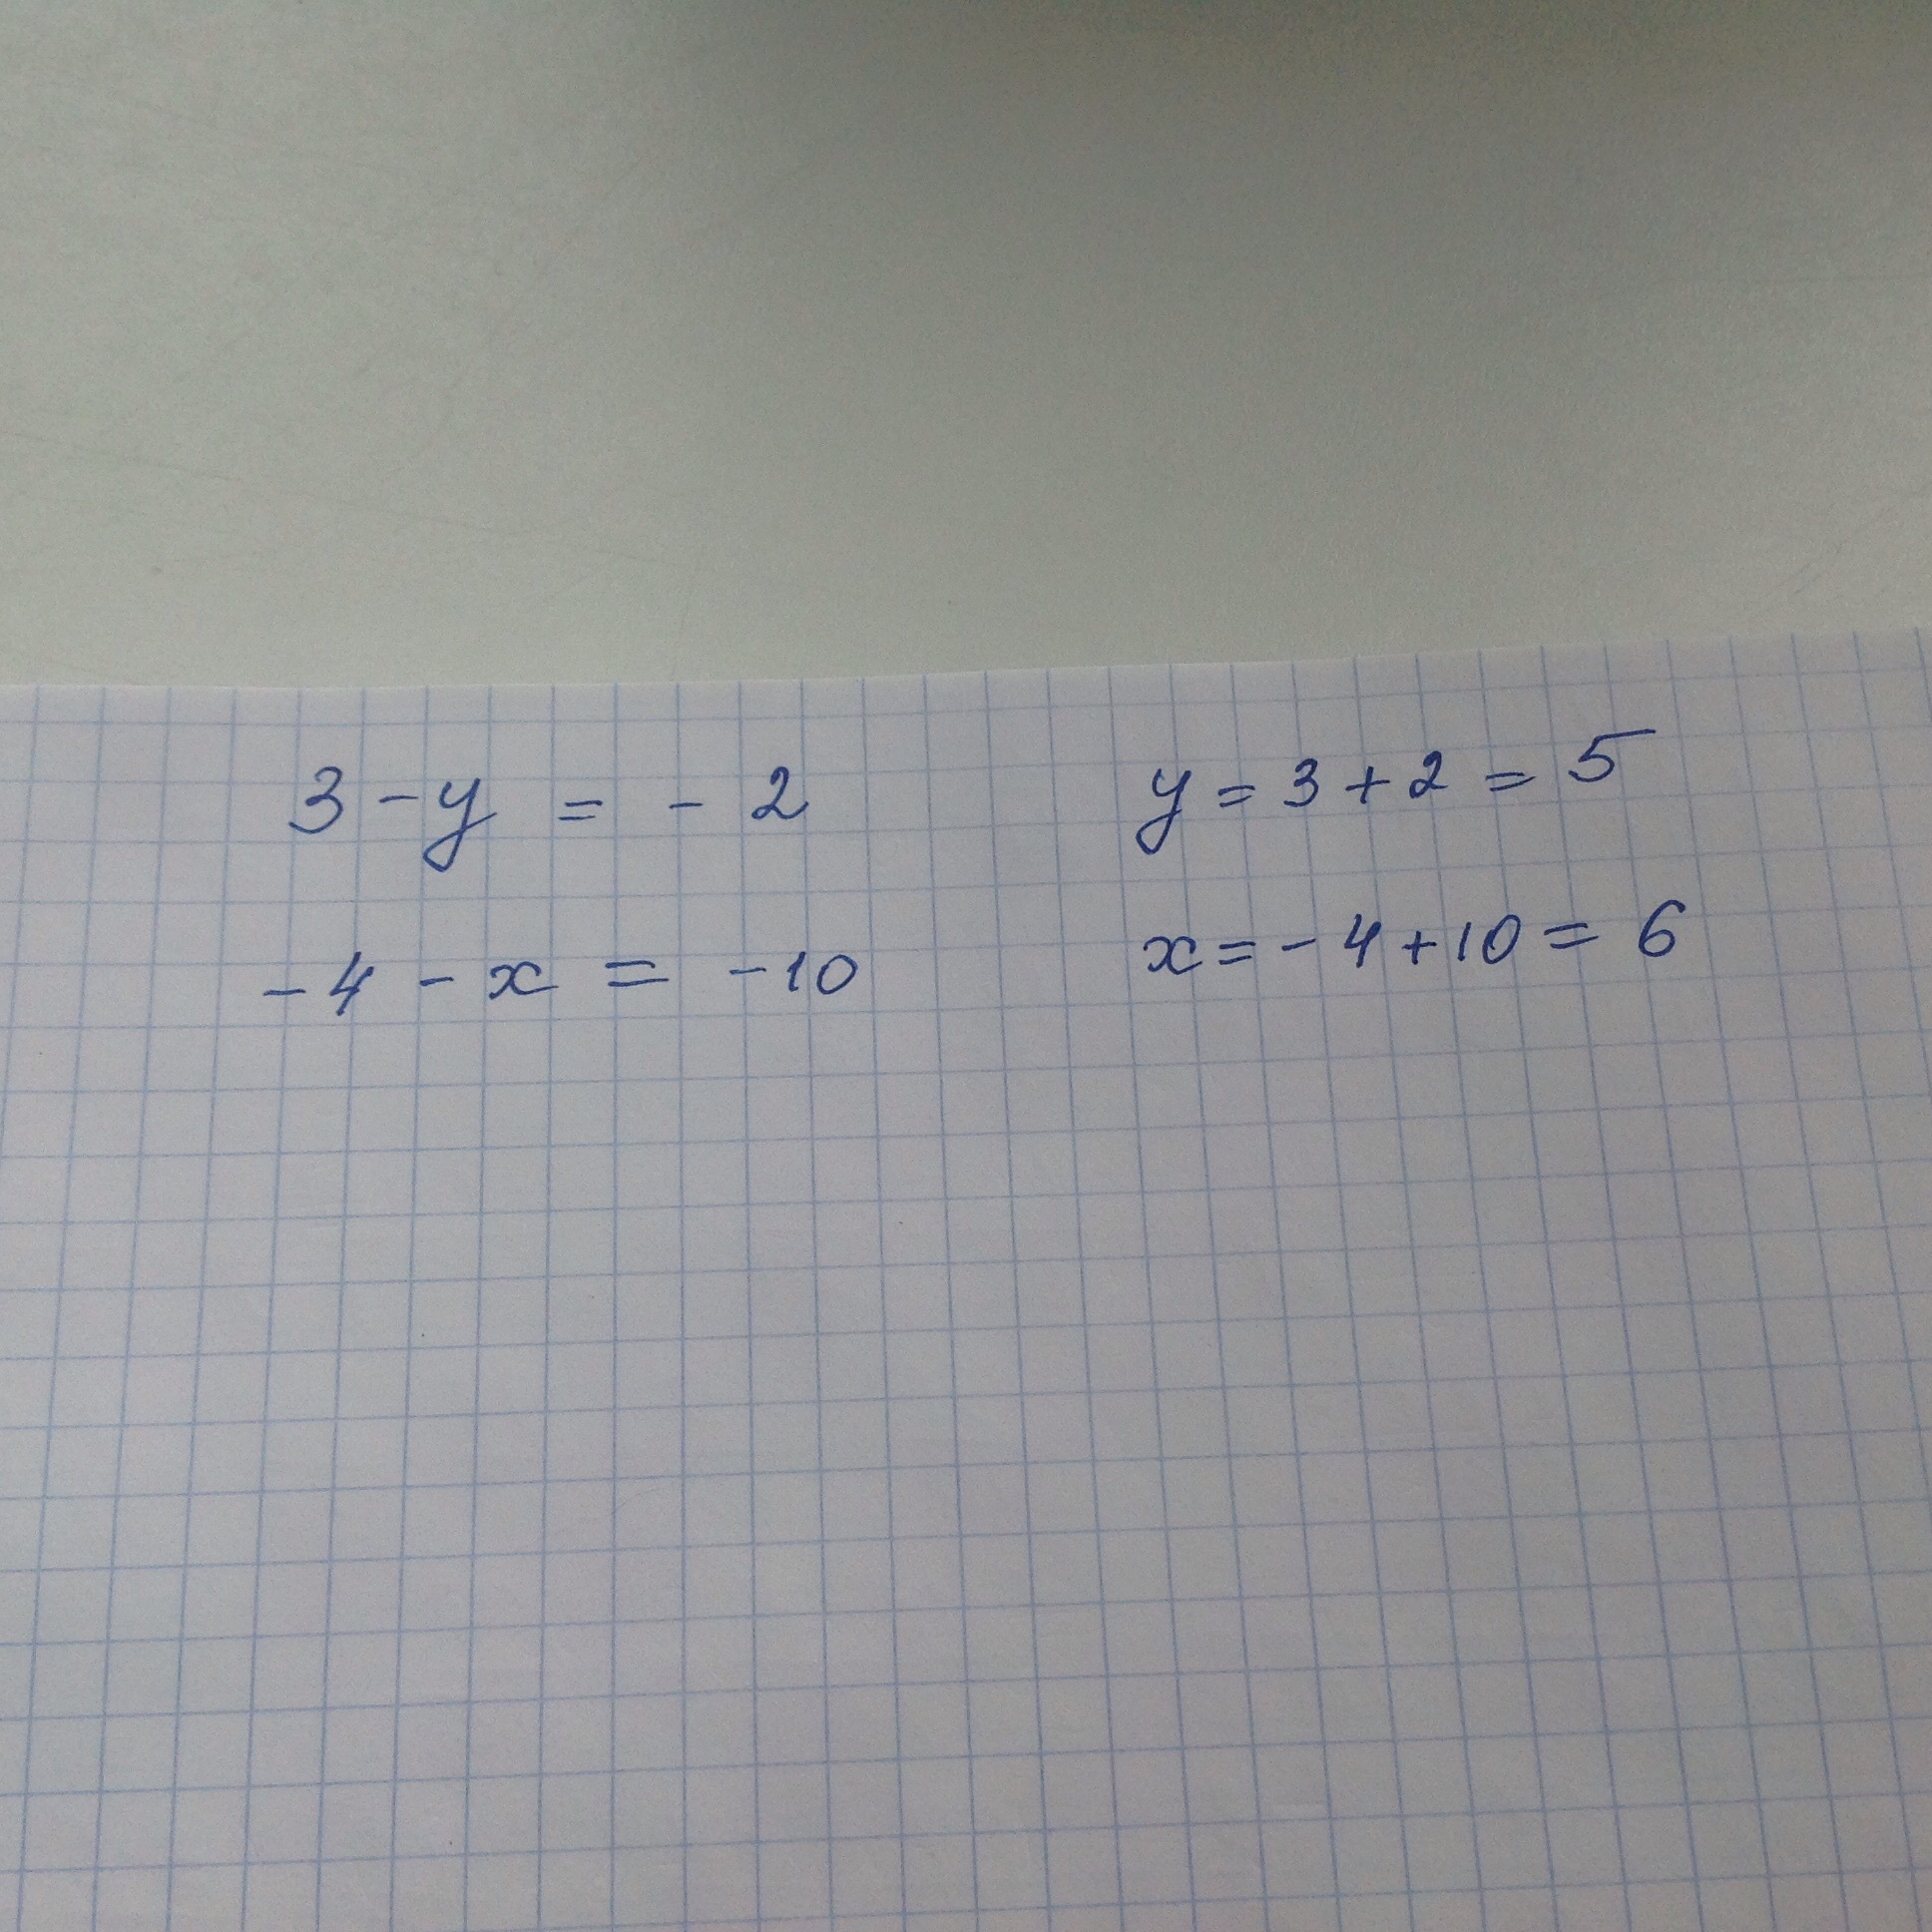 3 - y = - 2
y = 3 + 2 = 5
- 4 - x = - 10
x = - 4 + 10 = 6